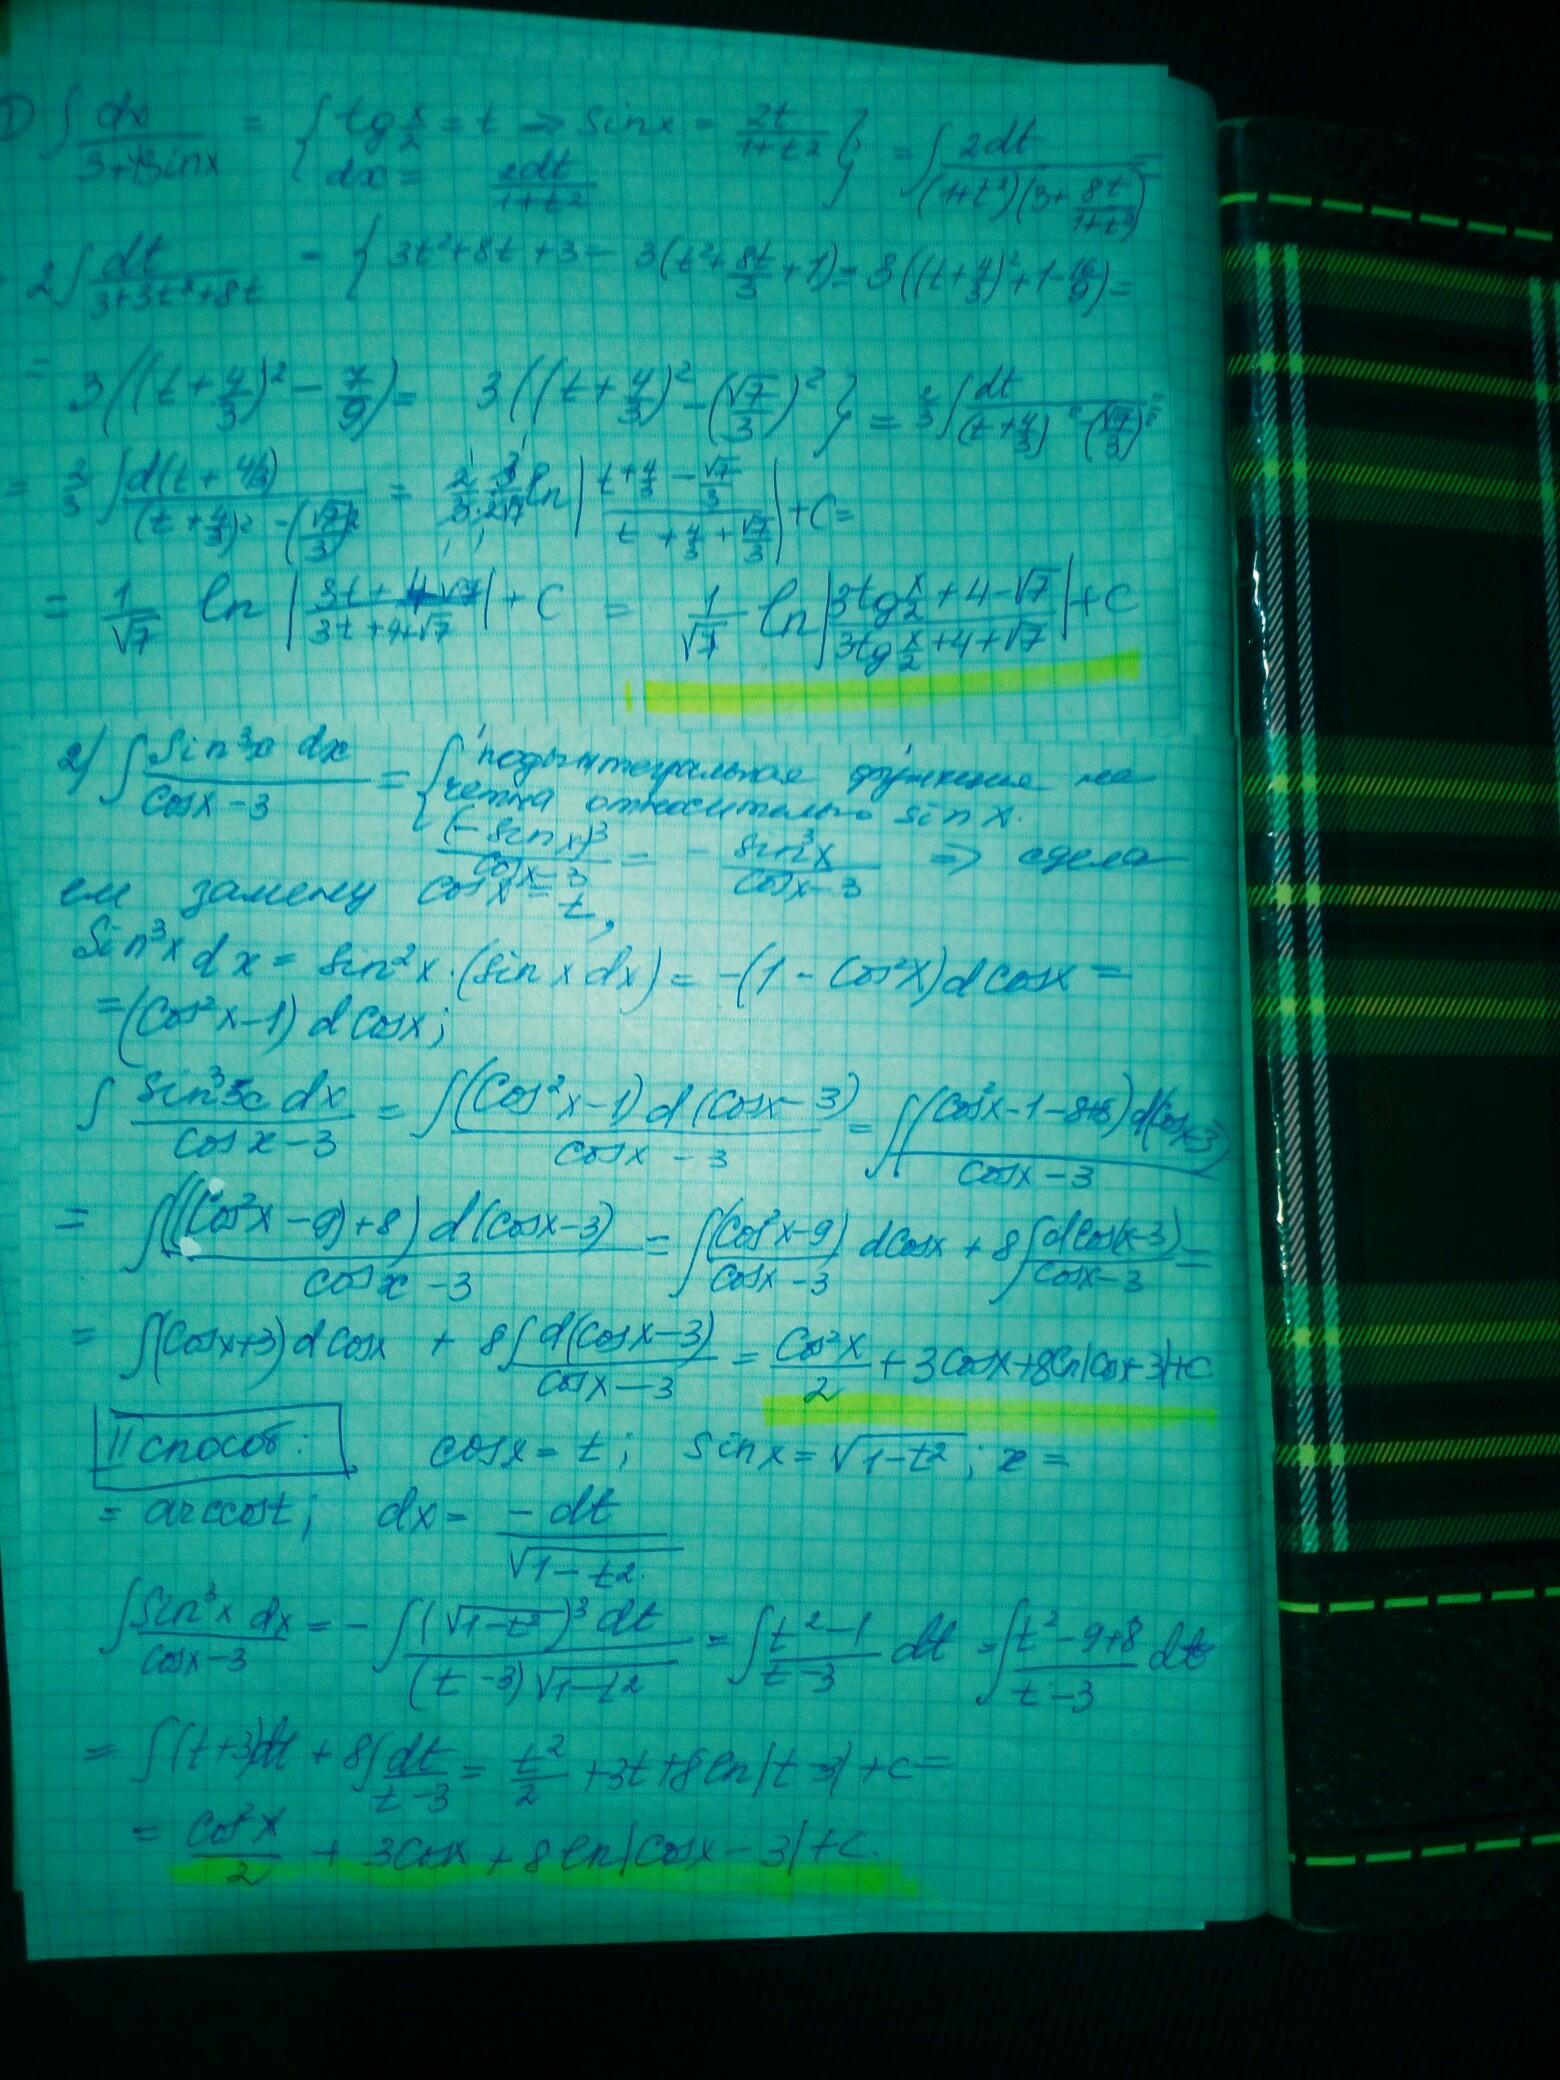 1) ∫ dx/(3+4sinx) = { tg x/2 = t ⇒ sinx = 2t/(1+t²)
dx = 2dt/(1+t²) } = ∫ 2dt/((1+t²)(3+8t/(1+t²)))
2∫ dt/(3+3t²+8t) = { 3t²+8t+3 = 3(t²+8t/3+1) = 3((t+4/3)²+1-16/9) =
= 3((t+4/3)² - 7/9) = 3((t+4/3)² - (√7/3)²} = 2/3 ∫ dt/((t+4/3)² - (√7/3)²)
= 2/3 ∫ d(t+4/3)/((t+4/3)² - (√7/3)²) = 2/3 · 3/2√7 ln|(t+4/3 - √7/3)/(t+4/3+√7/3)| + C =
= 1/√7 ln|(3t+4-√7)/(3t+4+√7)| + C = 1/√7 ln|(3tg x/2 + 4 - √7)/(3tg x/2 + 4 + √7)| + C
2) ∫ sin³x dx/(cosx - 3) = { подынтегральная функция не
четна относительно sin x.
(-sin x)³/(cosx - 3) = - sin³x/(cosx - 3) ⇒ сдела
ем замену cosx = t,
Sin³x dx = sin²x·(sin x dx) = -(1 - Cos²x) d cosx =
= (Cos²x - 1) d Cosx;
∫ sin³x dx/(cosx - 3) = ∫ (Cos²x - 1) d(Cosx - 3)/(cosx - 3) = ∫ (Cos²x - 1 - 8 + 8) d(Cosx - 3)/(Cosx - 3)
= ∫ ((Cos²x - 9) + 8) d(Cosx - 3)/(cosx - 3) = ∫ (Cos²x - 9)/(Cosx - 3) dCosx + 8∫ d(Cosx - 3)/(Cosx - 3) =
= ∫(Cosx + 3) d Cosx + 8∫ d(Cosx - 3)/(cosx - 3) = Cos²x/2 + 3Cosx + 8ln|Cosx - 3| + C
II способ: cosx = t; sinx = √(1-t²); x =
= arccost; dx = -dt/√(1-t²)
∫ Sin³x dx/(cosx - 3) = - ∫ (√(1-t²))³ dt/((t-3)√(1-t²)) = ∫ (t²-1)/(t-3) dt = ∫ (t²-9+8)/(t-3) dt
= ∫(t+3)dt + 8∫ dt/(t-3) = t²/2 + 3t + 8ln|t-3| + C =
= Cos²x/2 + 3Cosx + 8ln|Cosx - 3| + C.